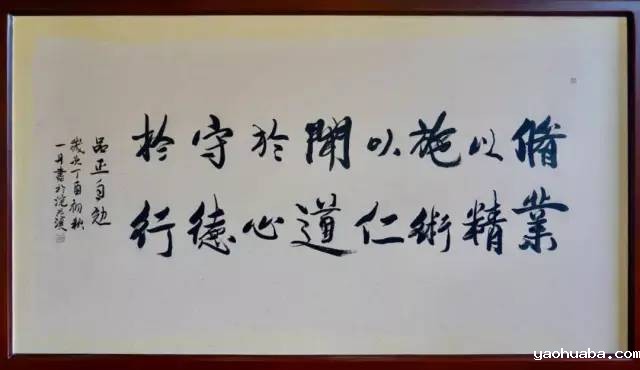 脩業
以精
施術
以仁
聞道
於心
守德
於行
品正自勉
歲次丁酉初秋
書於浣花溪
yaohuaba.com